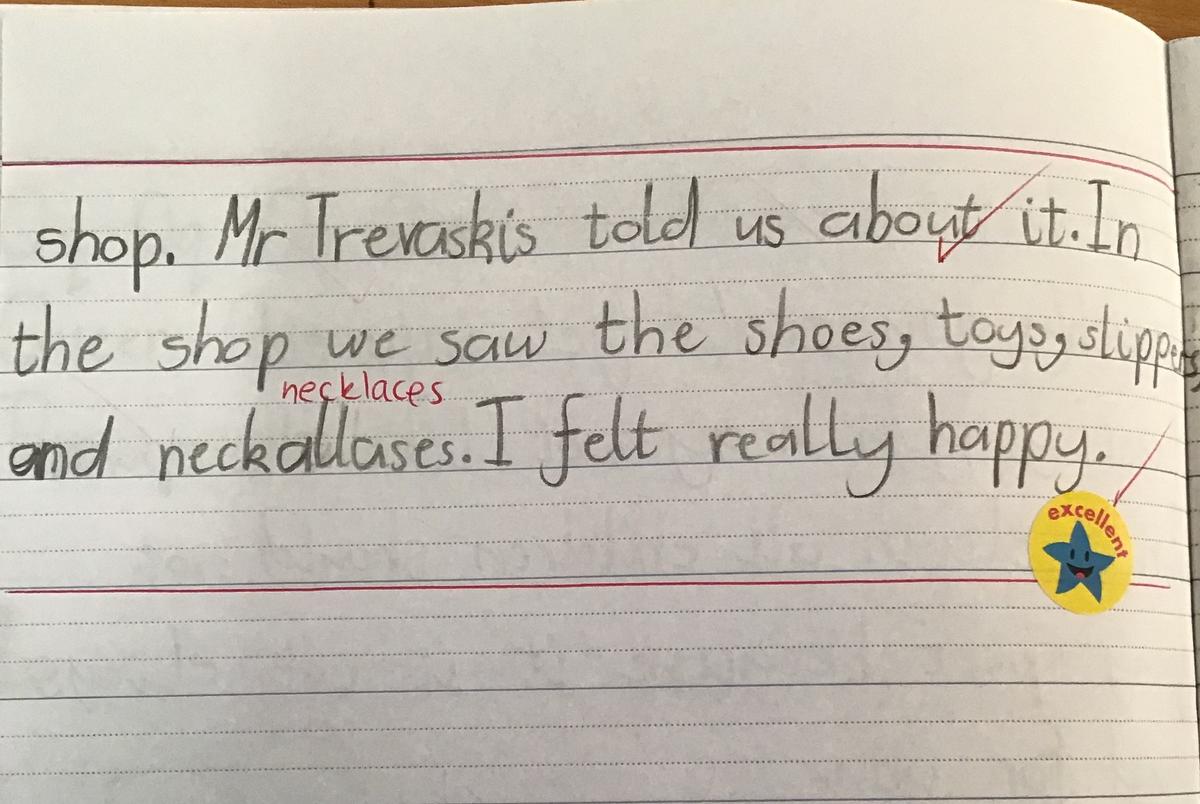 shop. Mr Trevaskis told us about it. In
the shop we saw the shoes, toys, slippers
necklaces
and neckallases. I felt really happy.
excellent